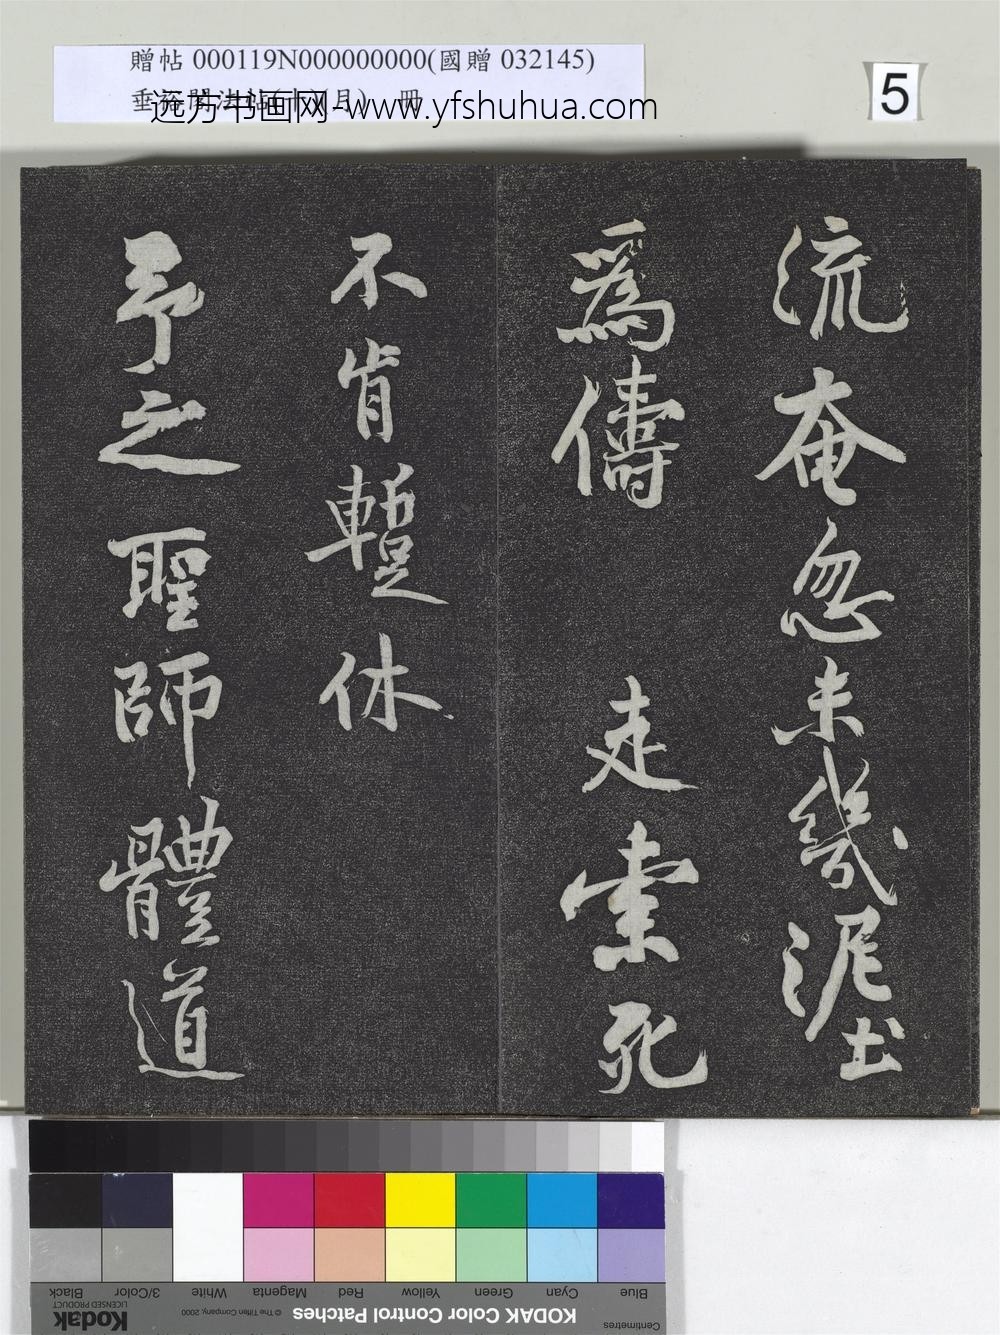 贈帖 000119N000000000(國贈 032145)
远方书画网-www.yfshuhua.com
5
流奄忽未幾泥土
爲儔 走索死
不肯蹔休
予之聖師體道
Black
3/Color
White
Magenta
Red
Yellow
Green
Cyan
Blue
Kodak
LICENSED PRODUCT
© The Tiffen Company, 2000
KODAK Color Control Patches
Centimetres